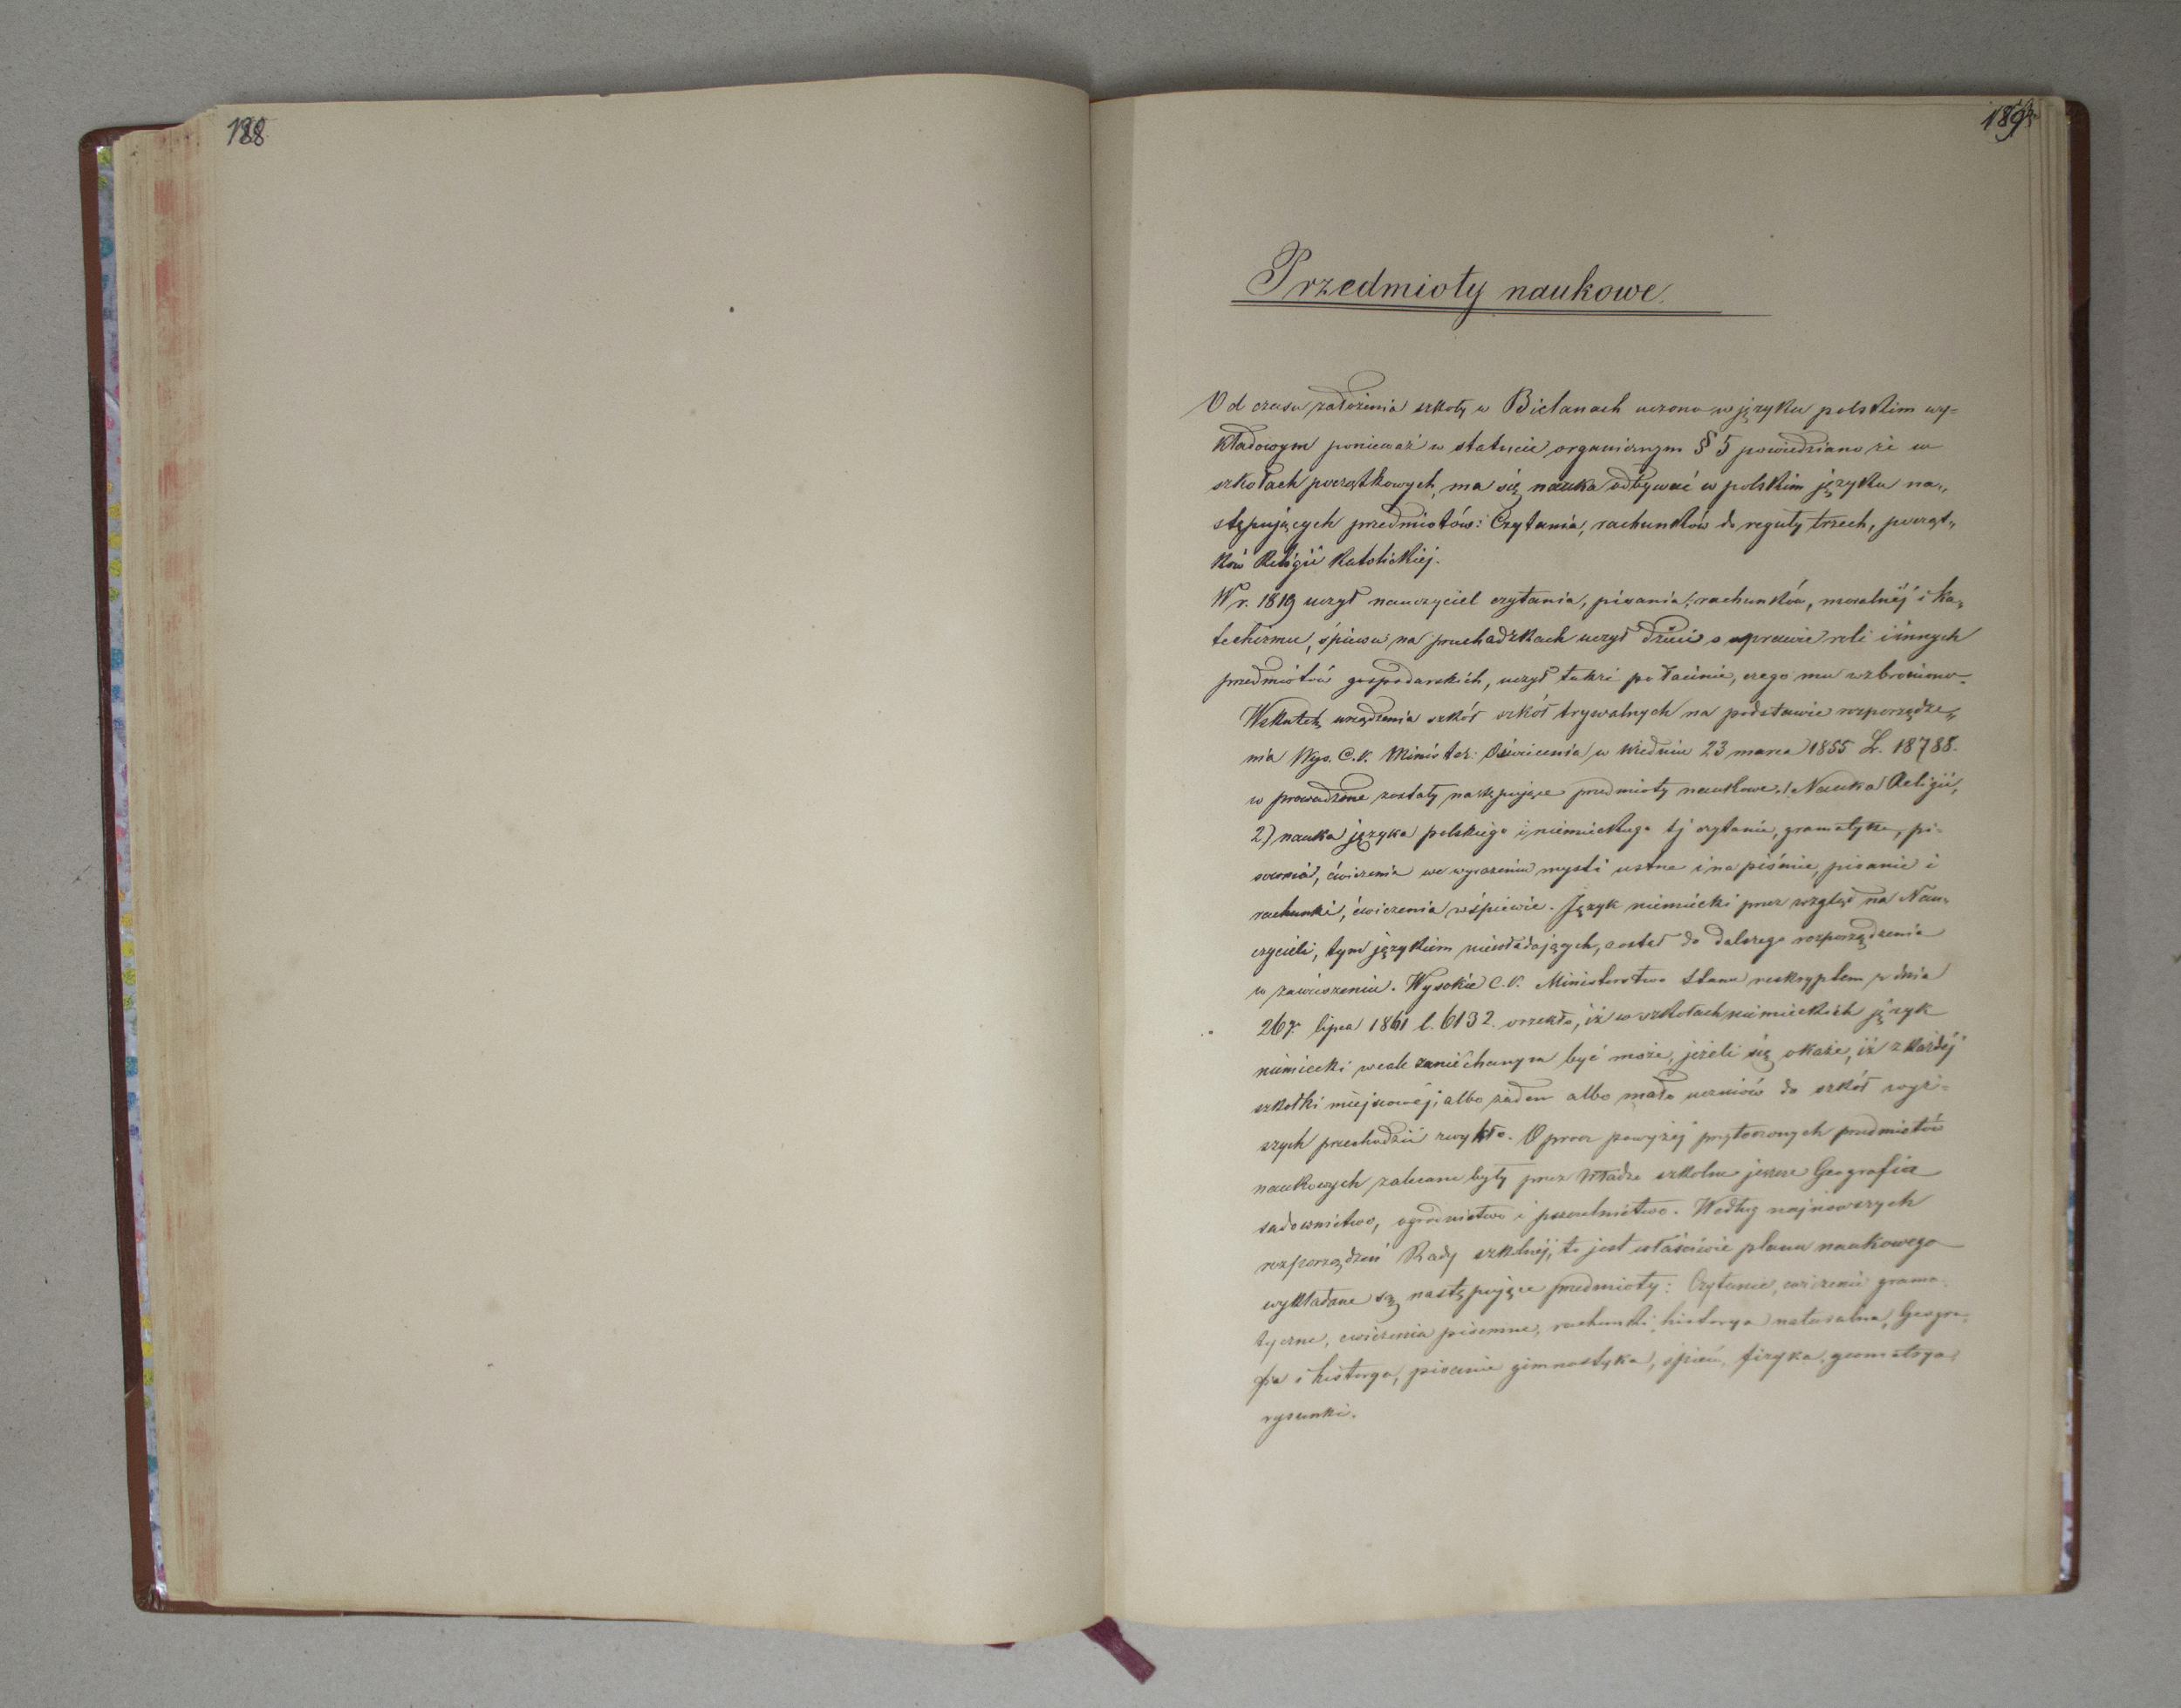 188
189
Przedmioty naukowe.
Od czasu założenia szkoły w Bielanach uczono w języku polskim wy=
kładowym ponieważ w statucie organicznym § 5 powiedziano że w
szkołach początkowych, ma się nauka odbywać w polskim języku na„
stępujących przedmiotów: Czytania, rachunków do reguły trzech, począt„
ków Religii katolickiéj.
W r. 1819 uczył nauczyciel czytania, pisania, rachunków, moralnéj i ka„
techizmu, śpiewu na przechadzkach uczył dzieci o uprawie roli i innych
przedmiotów gospodarskich, uczył także po łacinie, czego mu wzbroniono.
Wskutek urządzenia szkół szkół trywalnych na podstawie rozporządze„
nia Wys. C. K. Minister: Oświecenia w Wiedniu 23 marca 1855 L. 18788.
w prowadzone zostały następujące przedmioty naukowe. 1 Nauka Religii,
2) nauka języka polskiego i niemieckiego tj czytanie, gramatyka, pi=
sownia, ćwiczenia we wyrażeniu myśli ustne i na piśmie, pisanie i
rachunki, ćwiczenia w śpiewie. Język niemiecki przez wzgląd na Nau„
czycieli, tym językiem niewładających, został do dalszego rozporządzenia
w zawieszeniu. Wysokie C. K. Ministerstwo Stanu reskryptem z dnia
26go lipca 1861 l. 6132. orzekło, iż w szkołach niemieckich język
niemiecki wcale zaniechanym być może, jeżeli się okaże, iż z każdéj
szkółki miejscowéj, albo żaden albo mało uczniów do szkół wyż=
szych przechodzić zwykło. Oprócz powyżéj przytoczonych przedmiotów
naukowych zalecane były przez Władze szkolne jeszcze Geografia
sadownictwo, ogrodnictwo i pszczelnictwo. Według najnowszych
rozporządzeń Rady szkolnéj, to jest właściwie planu naukowego
wykładane są następujące przedmioty: Czytanie, ćwiczenie grama„
tyczne, ćwiczenia pisemne, rachunki, historya naturalna, Geogra„
fia i historya, pisanie gimnastyka, śpiew, fizyka, geometrya,
rysunki.